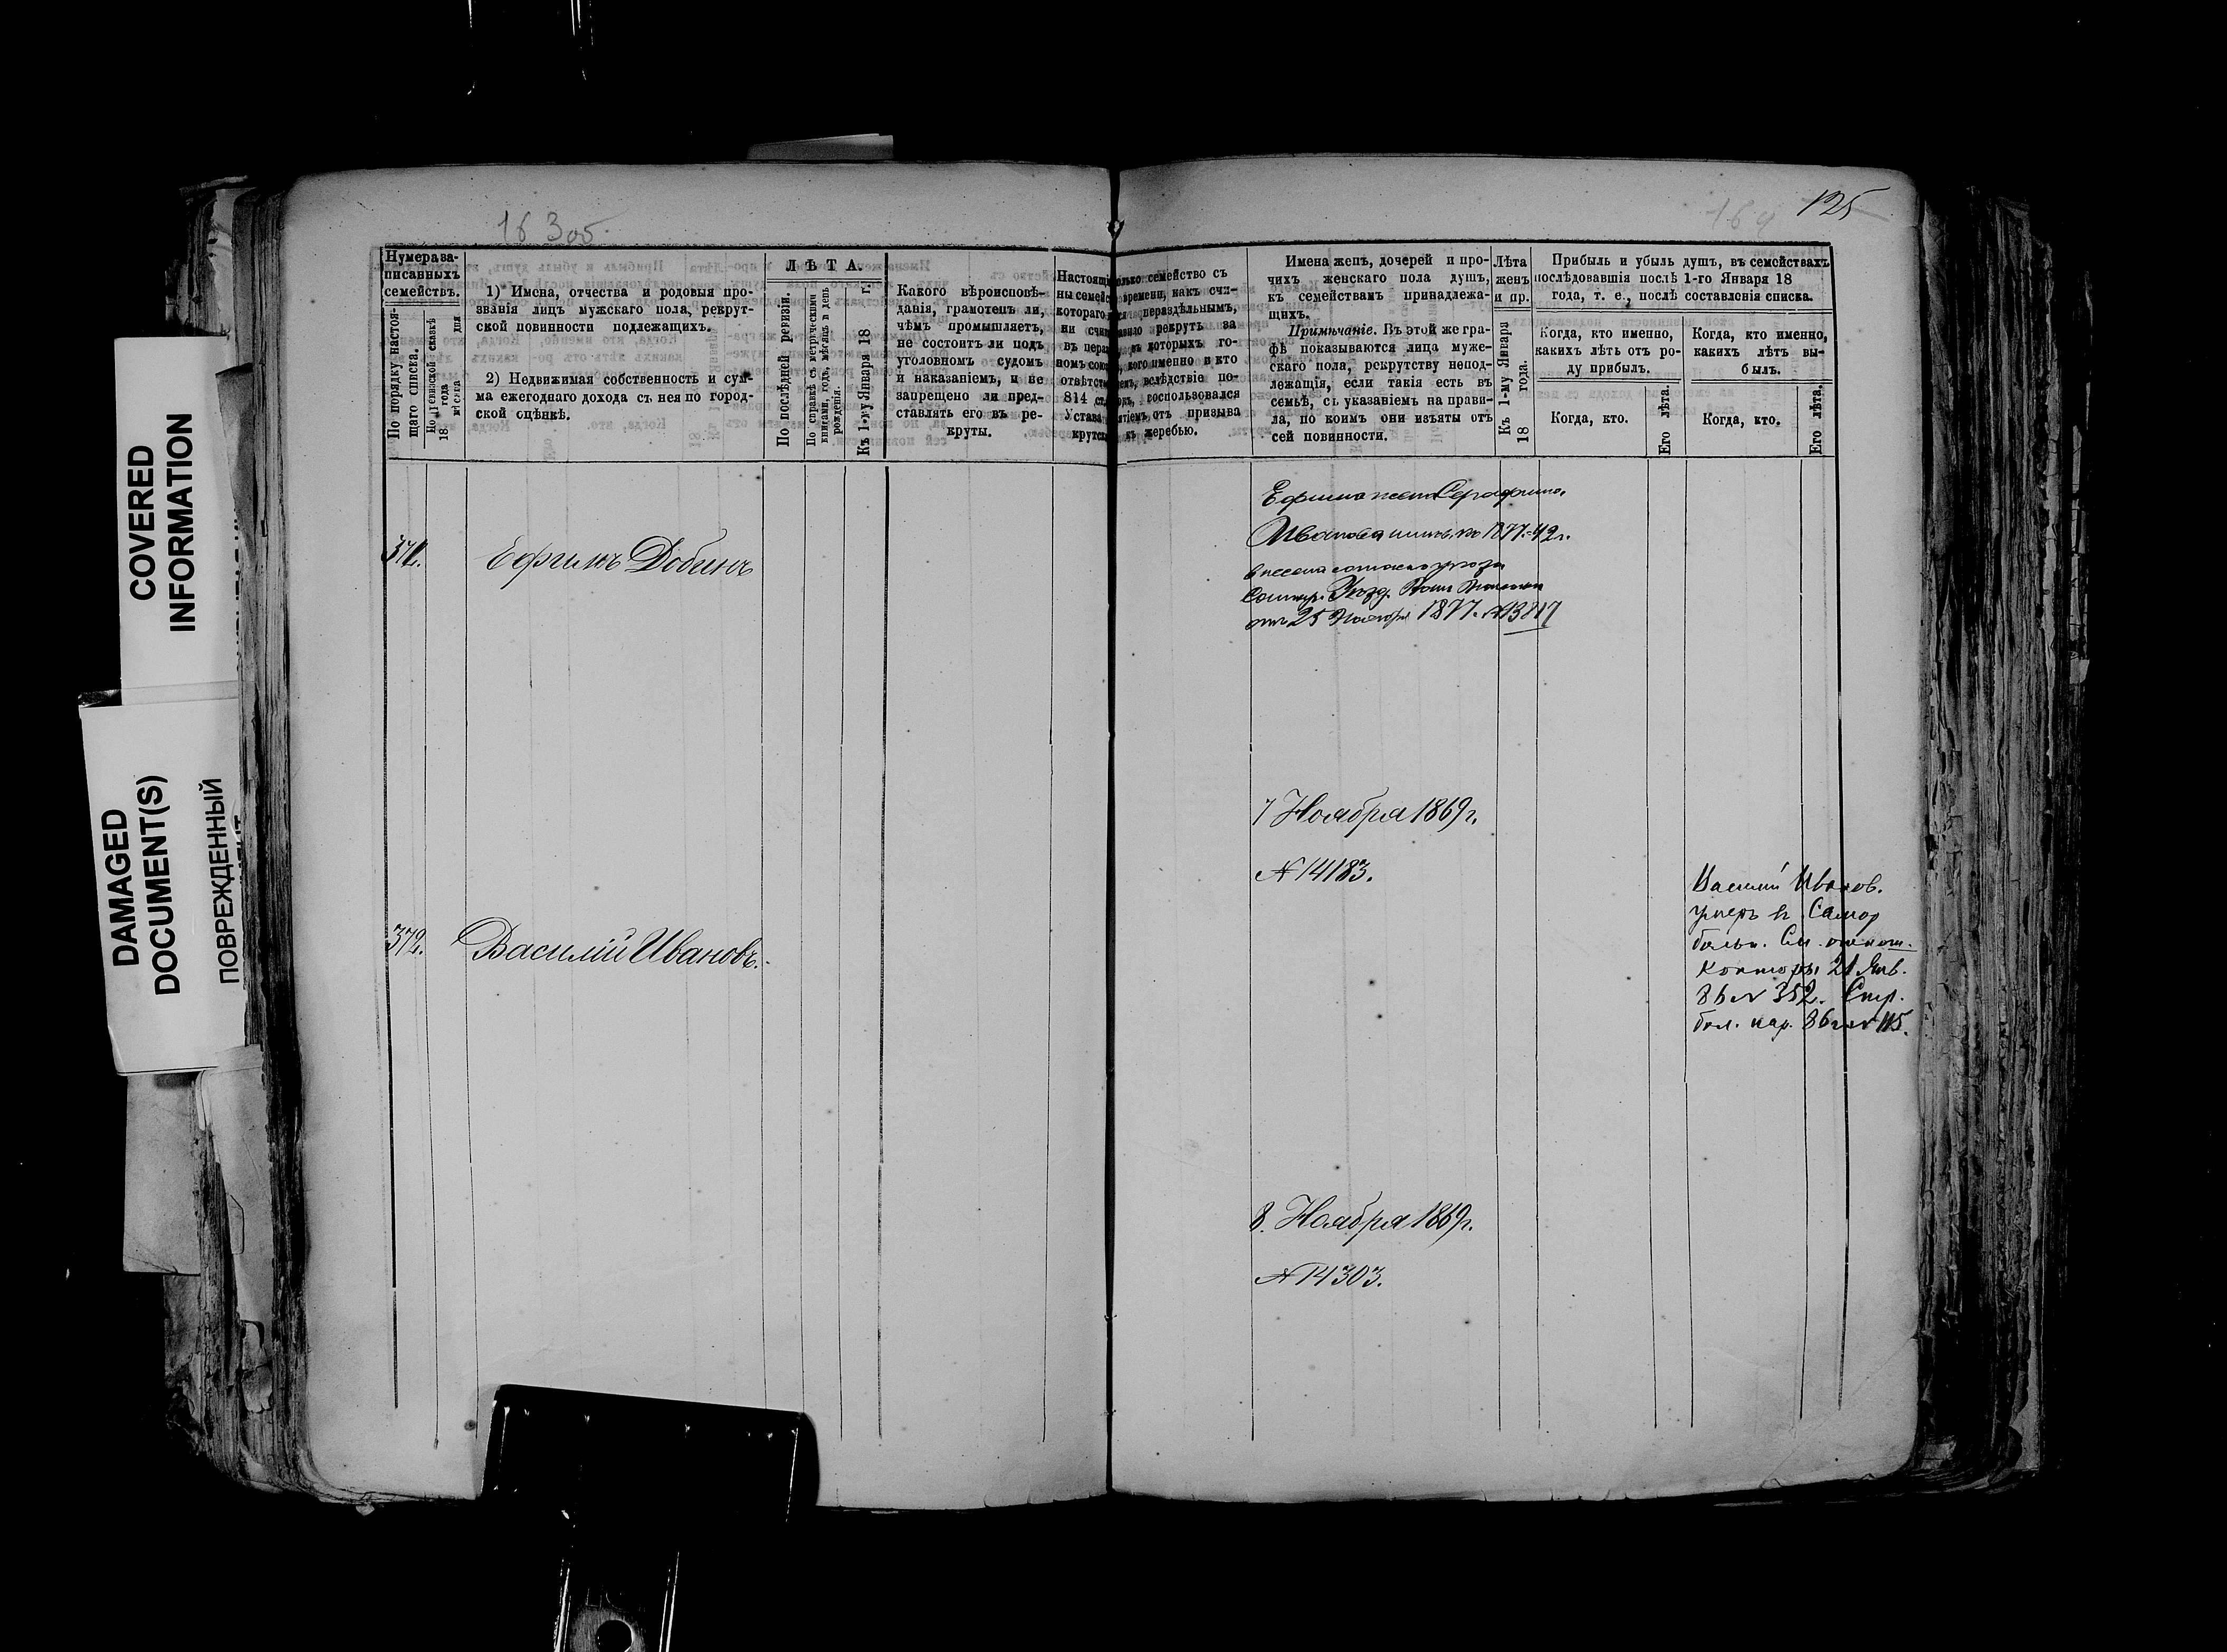 COVERED
INFORMATION
DAMAGED
DOCUMENT(S)
ПОВРЕЖДЕННЫЙ
163 об.
164
125
Нумера за-
писанныхъ
семействъ.
По порядку настоя-
щаго списка.
По ревизской сказкѣ
18 года
мѣсяца дня
1) Имена, отчества и родовыя про-
званія лицъ мужскаго пола, рекрут-
ской повинности подлежащихъ.
2) Недвижимая собственность и сум-
ма ежегоднаго дохода съ нея по город-
ской оцѣнкѣ.
ЛѢТА.
По послѣдней ревизіи.
По справкѣ съ метрическими
книгами, годъ, мѣсяцъ и день
рожденія.
Къ 1-му Января 18 г.
Какого вѣроисповѣ-
данія, грамотенъ ли,
чѣмъ промышляетъ,
не состоитъ ли подъ
уголовномъ судомъ
и наказаніемъ, и не
запрещено ли пред-
ставлять его въ ре-
круты.
Настоящ
ны семейс
котораго
ни счи
въ пера
номъ сово
отвѣтст
814 ст
Устава
крутск
олько семейство съ
времени, какъ счи-
нераздѣльнымъ,
авило рекрутъ за
въ которыхъ го-
кого именно и кто
емъ, вслѣдствіе по-
воспользовался
ятіемъ отъ призыва
къ жеребью.
Имена женъ, дочерей и про-
чихъ женскаго пола душъ,
къ семействамъ принадлежа-
щихъ.
Примѣчаніе. Въ этой же гра-
фѣ показываются лица муже-
скаго пола, рекрутству непод-
лежащія, если такія есть въ
семьѣ, съ указаніемъ на прави-
ла, по коимъ они изъяты отъ
сей повинности.
Лѣта
женъ
и пр.
Къ 1-му Января
18 года.
Прибыль и убыль душъ, въ семействахъ
послѣдовавшія послѣ 1-го Января 18
года, т. е., послѣ составленія списка.
Когда, кто именно,
какихъ лѣтъ отъ ро-
ду прибылъ.
Когда, кто.
Его лѣта.
Когда, кто именно,
какихъ лѣтъ вы-
былъ.
Когда, кто.
Его лѣта.
371.
Ефимъ Добинъ
Ефима жена Серафима
Иванова 1877. 42 г.
внесена согласно указа
отъ 25 Ноября 1877. № 13817
7 Ноября 1869 г.
№ 14183.
372.
Василій Ивановъ.
Василий Иванов.
умеръ в Самар
больн. См. отнош.
конторы 21 Янв.
86 № 352. Стр.
№ 115.
8. Ноября 1869 г.
№ 14303.